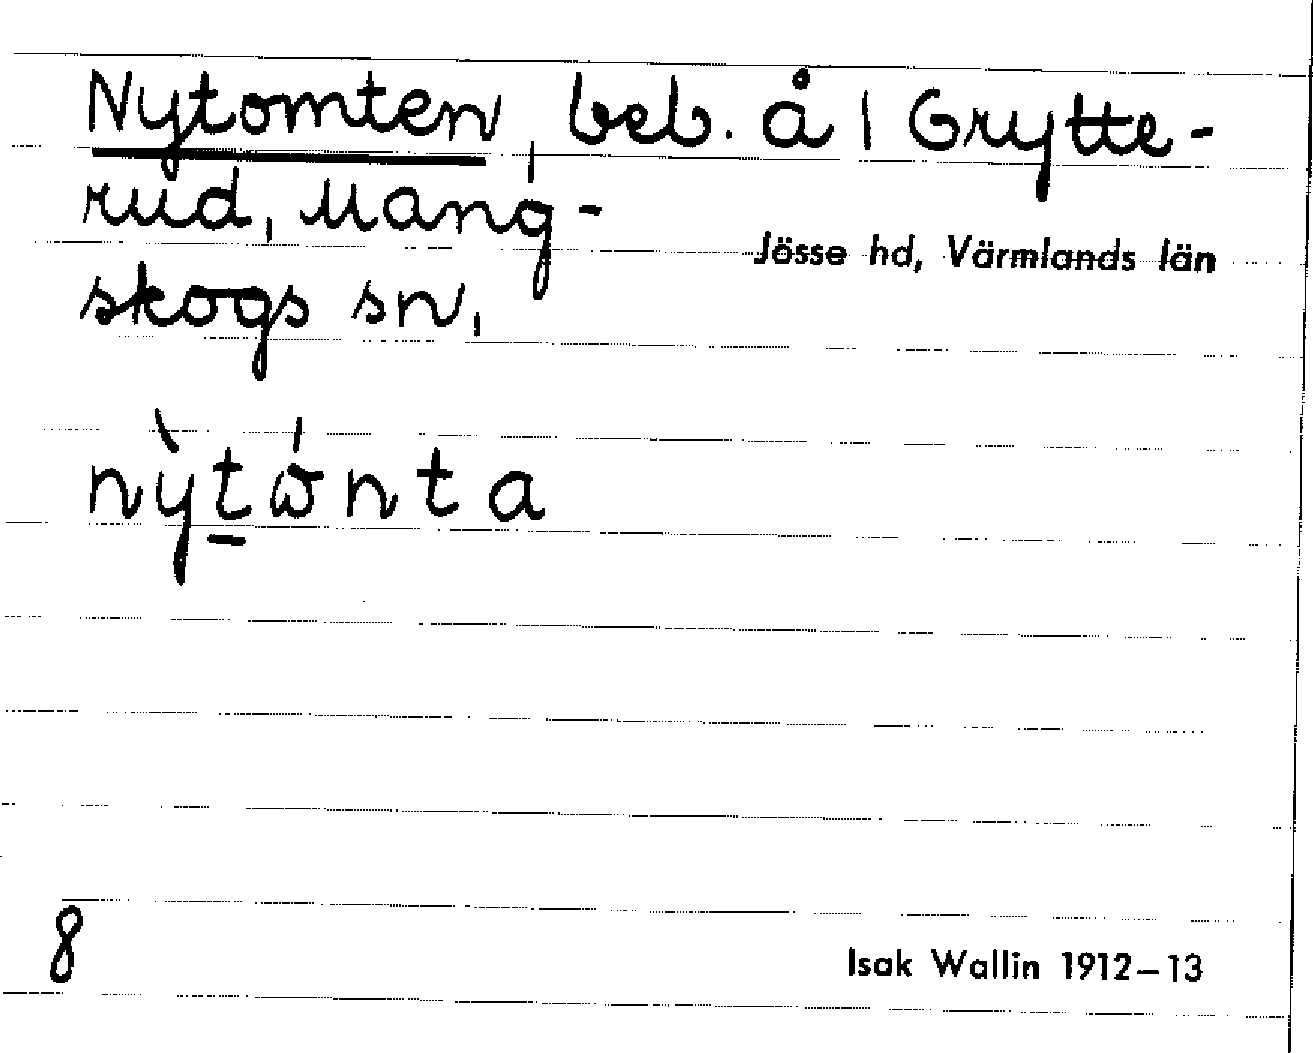 Nytomten, beb. å 1 Grytte-
rud, Mang-
skogs sn,
Jösse hd, Värmlands län
nỳtώnta
8
Isak Wallin 1912–13